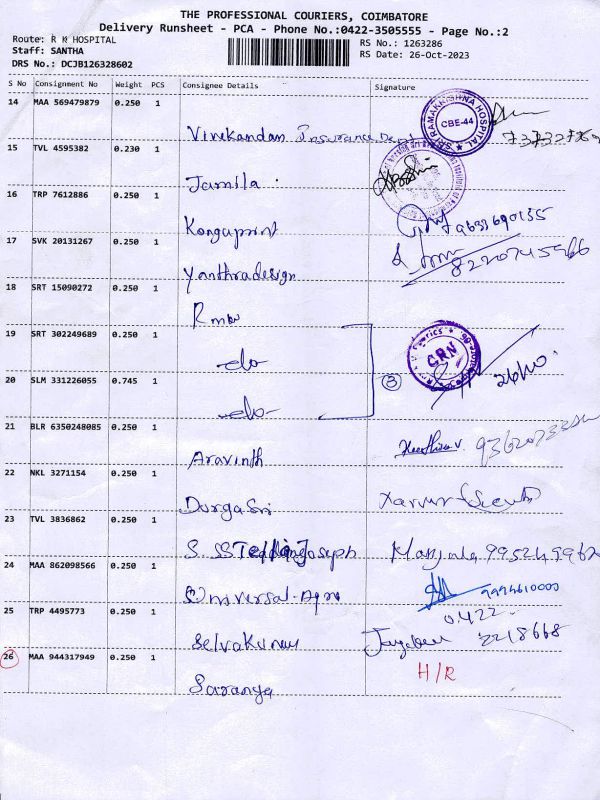 THE PROFESSIONAL COURIERS, COIMBATORE
Delivery Runsheet - PCA - Phone No.:0422-3505555 - Page No.:2
Route: R K HOSPITAL
Staff: SANTHA
DRS No.: DCJB126328602
RS No.: 1263286
RS Date: 26-Oct-2023
S No Consignment No Weight PCS Consignee Details Signature
14 MAA 569479879 0.250 1
Vivekandan Insurance Dept
SRI RAMAKRISHNA HOSPITAL
CBE-44
15 TVL 4595382 0.230 1
Jamila
16 TRP 7612886 0.250 1
Kongaprint 9633690135
17 SVK 20131267 0.250 1
Yanthradesign 8220745966
18 SRT 15090272 0.250 1
Rmw
19 SRT 302249689 0.250 1
-do-
GRN
26/10
20 SLM 331226055 0.745 1
-do-
3
21 BLR 6350248085 0.250 1
Aravinth
22 NKL 3271154 0.250 1
Durga Sri
23 TVL 3836862 0.250 1
S. SS Joseph Manjula
24 MAA 862098566 0.250 1
Universal-Agro 9994610000
25 TRP 4495773 0.250 1
Selvakumar 0422- 2218668
26 MAA 944317949 0.250 1 H/R
Saranya